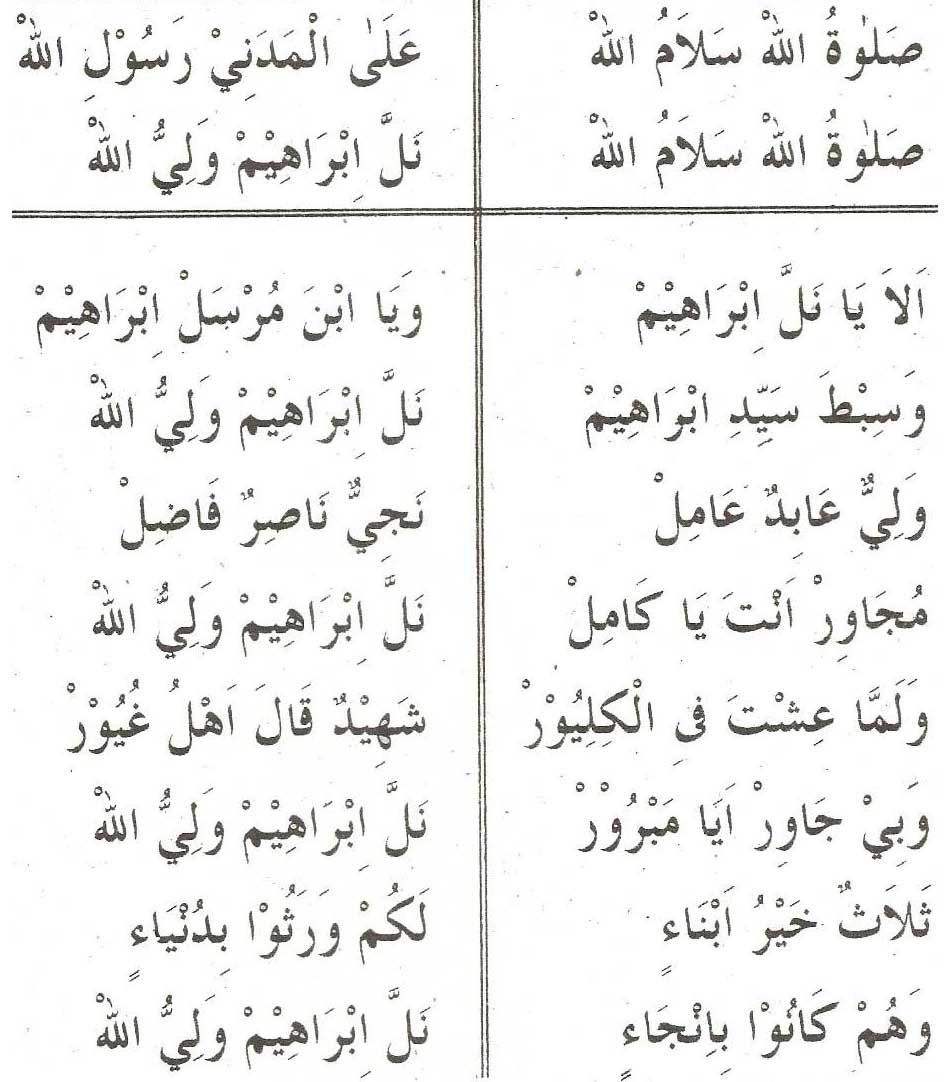 صَلٰوةُ اللهْ سَلاَمُ اللهْ عَلَى الْمَدَنِيْ رَسُوْلِ اللهْ
صَلٰوةُ اللهْ سَلاَمُ اللهْ نَلَّ اِبْرَاهِيْمْ وَلِيُّ اللهْ
اَلاَ يَا نَلَّ اِبْرَاهِيْمْ وَيَا ابْنَ مُرْسَلْ اِبْرَاهِيْمْ
وَسِبْطَ سَيِّدِ ابْرَاهِيْمْ نَلَّ اِبْرَاهِيْمْ وَلِيُّ اللهْ
وَلِيٌّ عَابِدٌ عَامِلْ نَجِيٌّ نَاصِرٌ فَاضِلْ
مُجَاوِرْ اَنْتَ يَا كَامِلْ نَلَّ اِبْرَاهِيْمْ وَلِيُّ اللهْ
وَلَمَّا عِشْتَ فِى الْكِلِيُوْرْ شَهِيْدٌ قَالَ اَهْلُ غُيُوْرْ
وَبِيْ جَاوِرْ اَيَا مَبْرُوْرْ نَلَّ اِبْرَاهِيْمْ وَلِيُّ اللهْ
ثَلاَثٌ خَيْرُ اَبْنَاءٍ لَكُمْ وَرَثُوْا بِدُنْيَاءٍ
وَهُمْ كَانُوْا بِاِنْجَاءٍ نَلَّ اِبْرَاهِيْمْ وَلِيُّ اللهْ